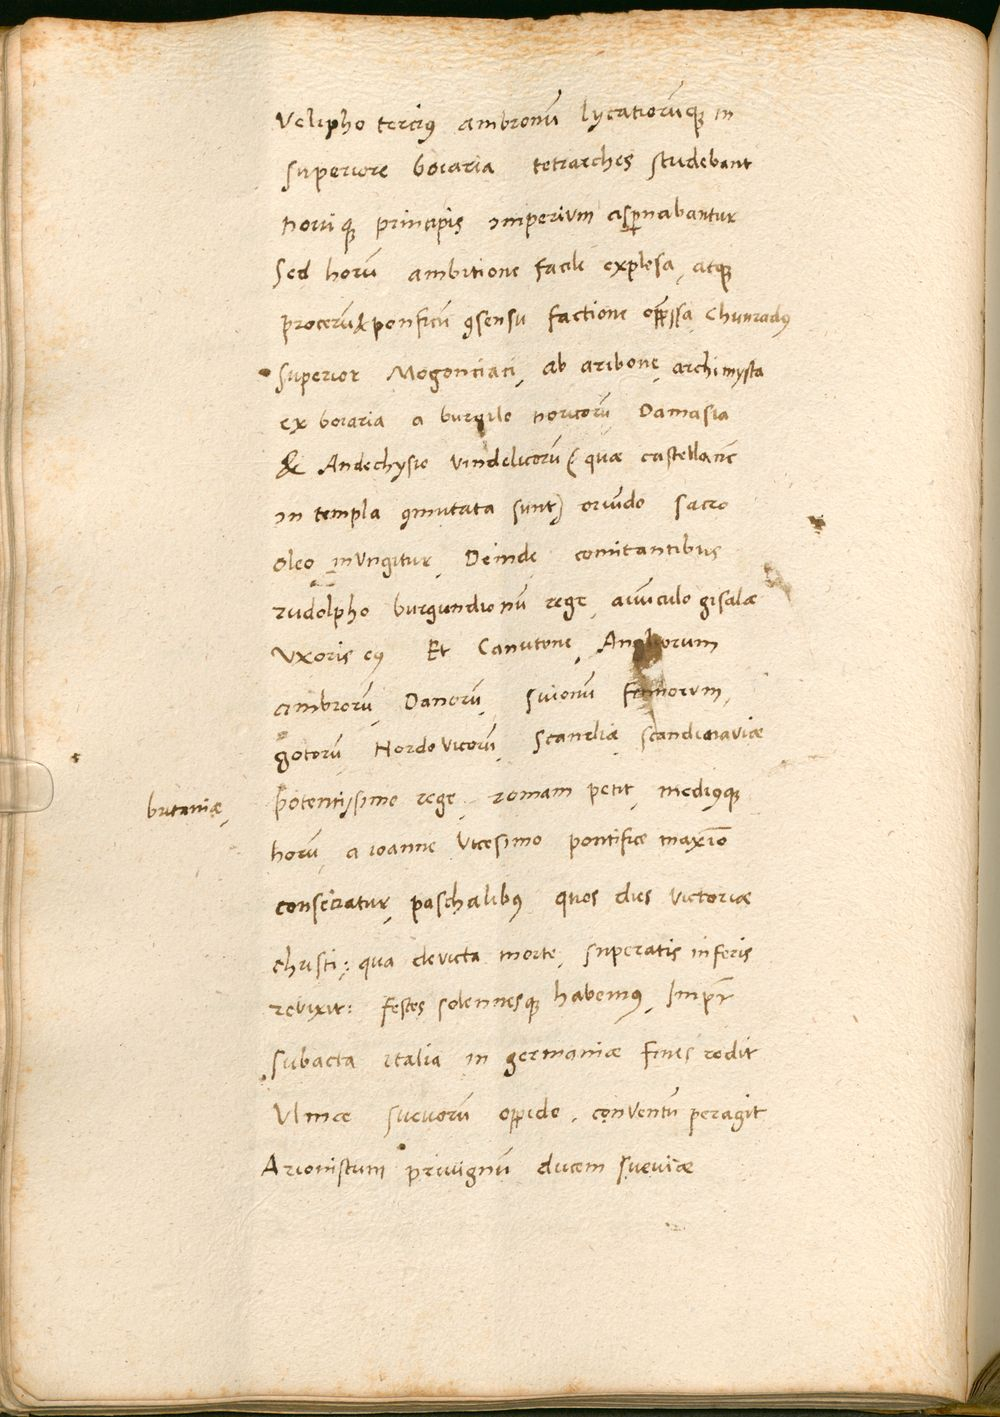 Velipho tercius ambronũ lycatiorũqꝫ in
superiore boiaria tetrarches studebant
noviqꝫ principis imperium aspnabantur
Sed horũ ambitione facile explosa, atqꝫ
procerũ & ponficũ ꝯsensu factione oppssa Chunradꝰ
superior Mogonciaci, ab aribone, archimysta
ex boiaria a burgilo noricorũ Damasia
& Andechysio vindelicorũ (quæ castella nc̄
in templa ꝯmutata sunt) oriũdo sacro
oleo inungitur, Deinde comitantibus
rudolpho burgundionũ rege, avũculo gisalæ
uxoris eiꝰ Et Canutone, Angliorum
cimbrorũ, Danorũ, Suionũ Finnorum,
gotorũ, Nordovicorũ, Scandiæ, scandinaviæ
britaniæ,
potentissimo rege, romam petit, mediꝰqꝫ
horũ, a ioanne vicesimo pontifice maxĩo
consecratur, paschalibꝰ quos dies victoriæ
christi; qua devicta morte, superatis inferis
revixit: festos solennesqꝫ habemꝰ, Imp̄r
subacta italia in germaniæ fines redit
Ulmæ suevorũ oppido, conventũ peragit
Arionistum privignũ ducem sueviæ